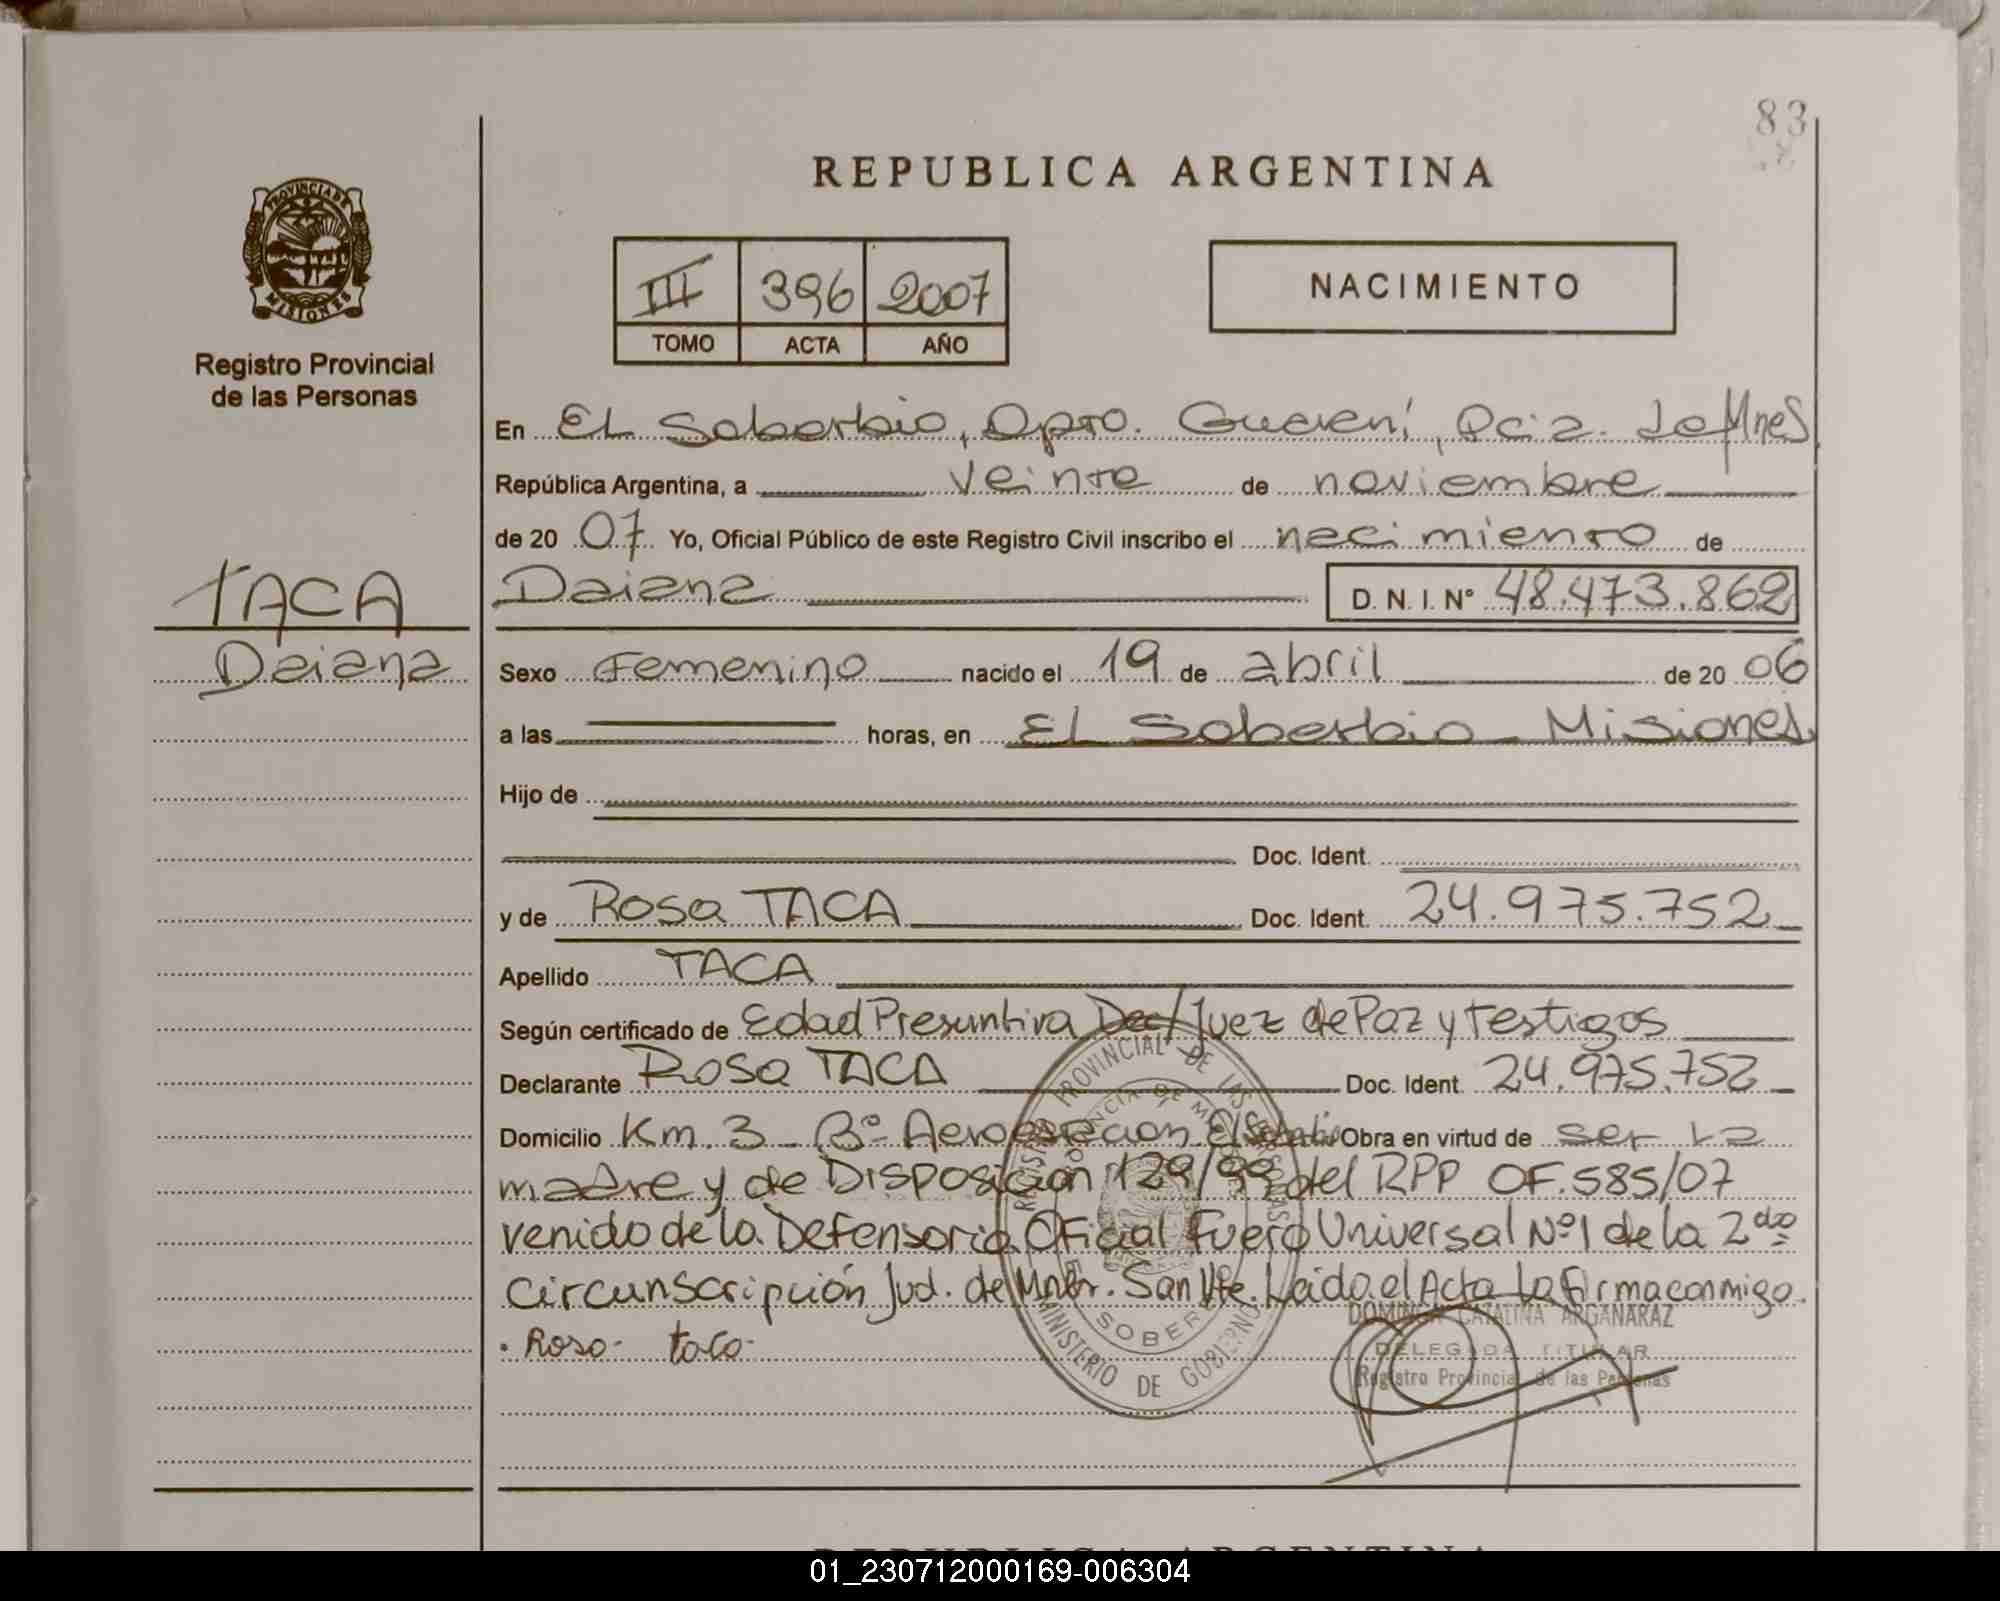 83
REPUBLICA ARGENTINA
PROVINCIA DE MISIONES
Registro Provincial
de las Personas
III 396 2007
TOMO ACTA AÑO
NACIMIENTO
En El Soberbio, Dpto. Guaraní, Pcia. de Mnes
República Argentina, a veinte de noviembre
de 20 07 Yo, Oficial Público de este Registro Civil inscribo el nacimiento de
Daiana D. N. I. Nº 48.473.862
TACA
Daiana
Sexo Femenino nacido el 19 de abril de 20 06
a las horas, en El Soberbio - Misiones
Hijo de
Doc. Ident.
y de Rosa TACA Doc. Ident. 24.975.752
Apellido TACA
Según certificado de Edad Presuntiva Dec/Juez de Paz y testigos
Declarante Rosa TACA Doc. Ident. 24.975.752
Domicilio Km. 3 - Bº Aeroestacion El Soberbio Obra en virtud de ser la
madre y de Disposicion 129/99 del RPP OF. 585/07
venido de la Defensoria Oficial Fuero Universal Nº1 de la 2da
Circunscripción Jud. de Mnes. San Vte. Leida el Acta La firma conmigo.
. Rosa- taca-
REGISTRO PROVINCIAL DE LAS PERSONAS
PROVINCIA DE MISIONES
MINISTERIO DE GOBIERNO
CATALINA ARGAÑARAZ
DELEGADA TITULAR
Registro Provincial de las Personas
REPUBLICA ARGENTINA
01_230712000169-006304